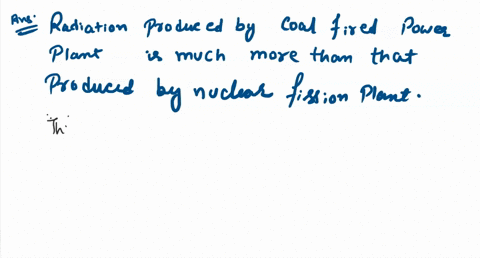 Ans:
Radiation Produced by Coal fired Power
Plant is much more than that
Produced by nuclear fission Plant.
Th